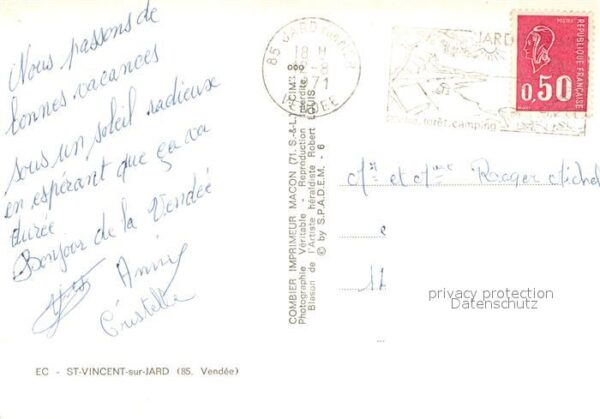 Nous passons de
bonnes vacances
sous un soleil radieux
en espérant que ça va
durée
Bonjour de la Vendée
Annie
Cristelle
EC - ST-VINCENT-sur-JARD (85. Vendée)
COMBIER IMPRIMEUR MACON (71. S.-&-L.) "CIM"
Photographie Véritable - Reproduction Interdite
Blason de l'Artiste héraldiste Robert LOUIS
© by S.P.A.D.E.M. - 6
85 JARD
18 H
1971
VENDEE
JARD
forêt. camping
POSTES
REPUBLIQUE FRANCAISE
0,50
Mr et Mme Roger Michel
privacy protection
Datenschutz